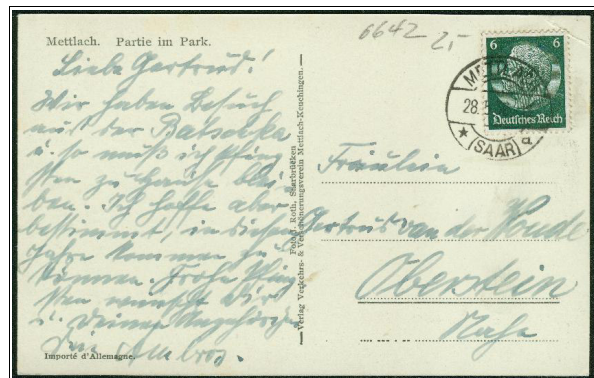 Mettlach. Partie im Park.
6642 2,-
Liebe Gertrud!
Wir haben Besuch
aus der Batschka
u. so muß ich Pfing
sten zu Hause blei
ben. Ich hoffe aber
bestimmt, in diesem
Jahre kommen zu
können. Frohe Pfing
sten wünscht Dir
u. Deinen Angehörigen
Importé d'Allemagne.
Fotogr. Roth, Saarbrücken
Verlag Verkehrs- & Verschönerungsverein Mettlach-Keuchingen.
6 6
Deutsches Reich
28.
(SAAR)
Fräulein
Gertrud van der
Oberstein
Nahe